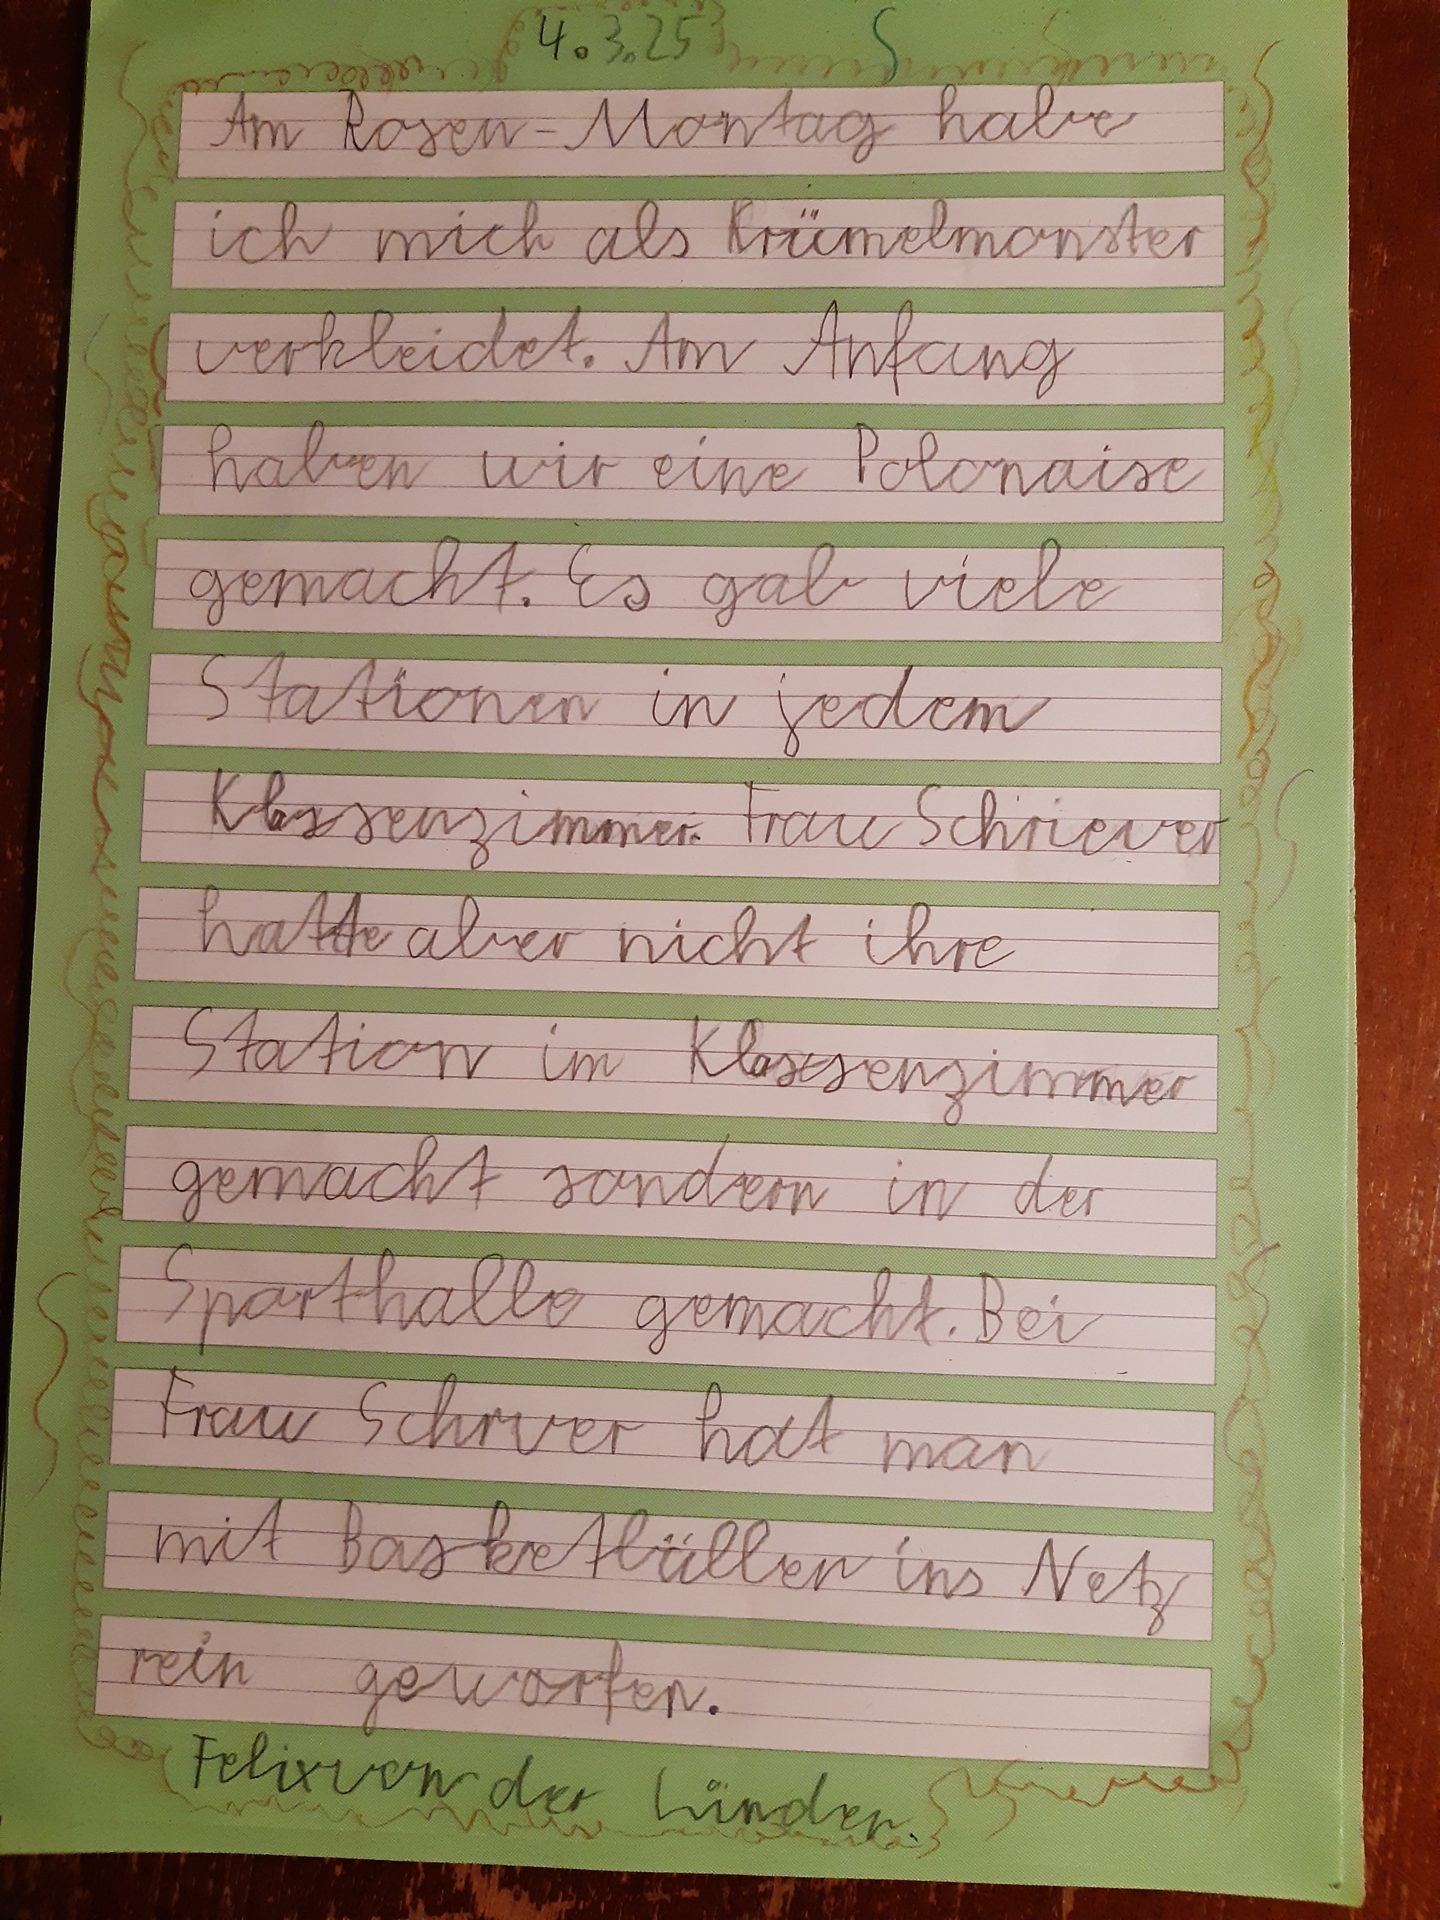 4.3.25
Am Rosen-Montag habe
ich mich als Krümelmonster
verkleidet. Am Anfang
haben wir eine Polonaise
gemacht. Es gab viele
Stationen in jedem
Klassenzimmer. Frau Schriever
hatte aber nicht ihre
Station im Klassenzimmer
gemacht sondern in der
Sporthalle gemacht. Bei
Frau Schrver hat man
mit Basketbüllen ins Netz
rein geworfen.
Felix von der Linden.